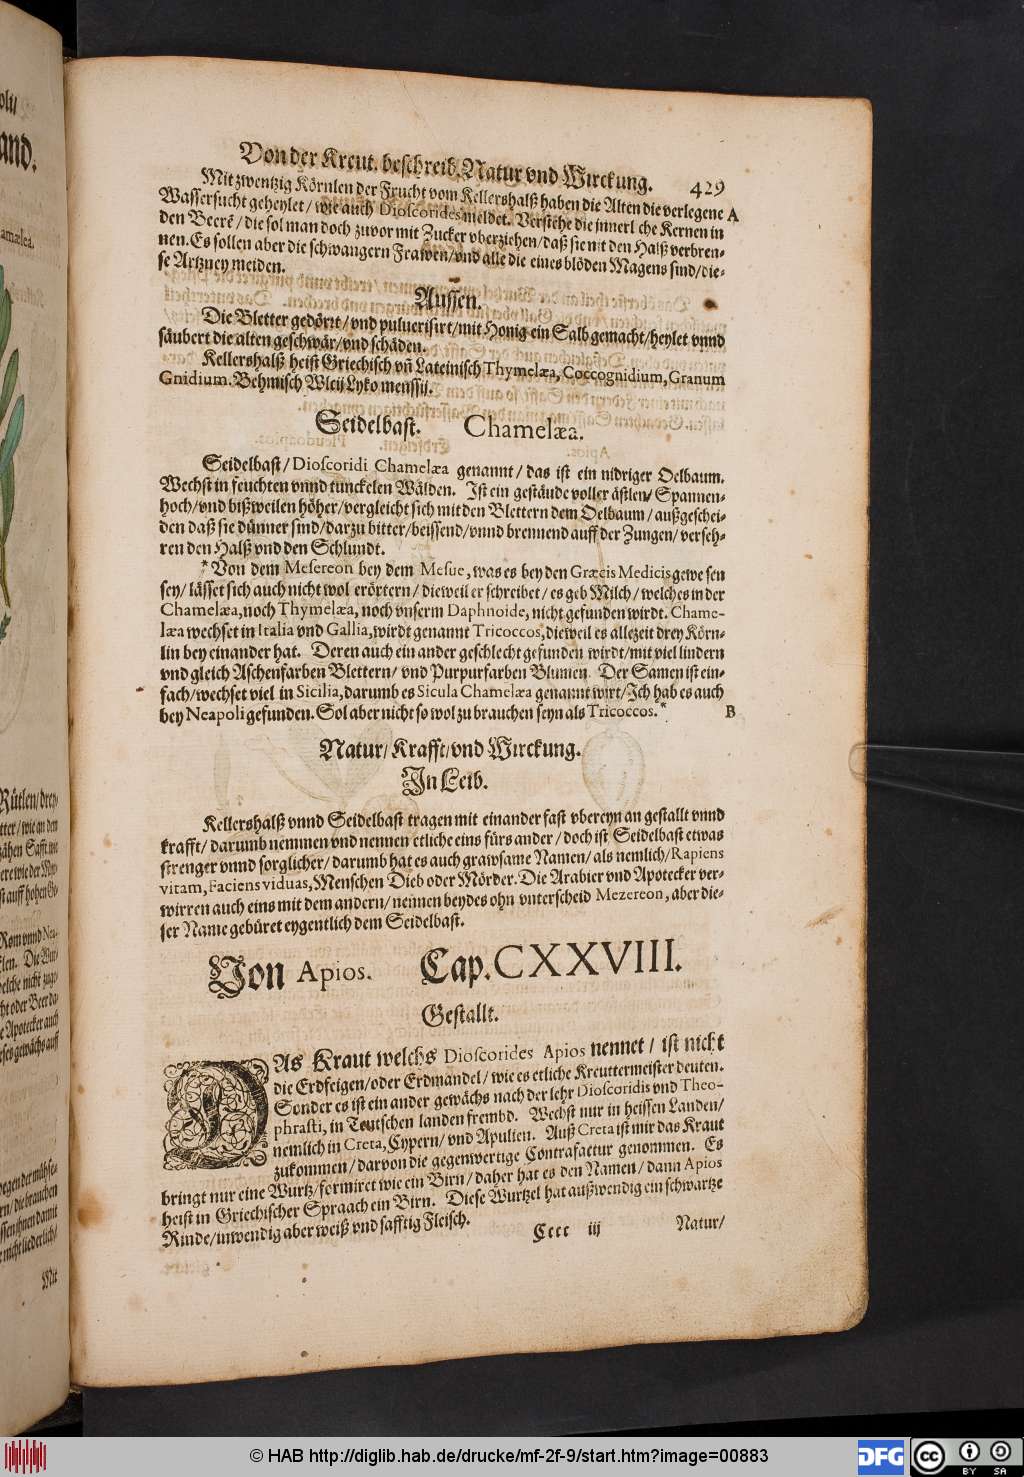 Von der Kreut. beschreib. Natur vnd Wirckung. 429
Mit zwentzig Körnlen der Frucht vom Kellershalß haben die Alten die verlegene A
Wassersucht geheylet / wie auch Dioscorides meldet. Verstehe die innerlche Kernen in
den Beerẽ / die sol man doch zuvor mit Zucker vberziehen / daß sie nit den Halß verbren-
nen. Es sollen aber die schwangern Frawen / vnd alle die eines blöden Magens sind / die-
se Artzney meiden.
Aussen.
Die Bletter gedörrt / vnd puluerisirt / mit Honig ein Salb gemacht / heylet vnnd
säubert die alten geschwär / vnd schäden.
Kellershalß heist Griechisch vñ Lateinisch Thymelæa, Coccognidium, Granum
Gnidium. Behmisch Wleij Lyko menssij.
Seidelbast. Chamelæa.
Seidelbast / Dioscoridi Chamelæa genannt / das ist ein nidriger Oelbaum.
Wechst in feuchten vnnd tunckelen Wälden. Ist ein gestäude voller ästlen / Spannen-
hoch / vnd bißweilen höher / vergleicht sich mit den Blettern dem Oelbaum / außgeschei-
den daß sie dünner sind / darzu bitter / beissend / vnnd brennend auff der Zungen / verseh-
ren den Halß vnd den Schlundt.
* Von dem Mesereon bey dem Mesue, was es bey den Græcis Medicis gewesen
sey / lässet sich auch nicht wol erörtern / dieweil er schreibet / es geb Milch / welches in der
Chamelæa, noch Thymelæa, noch vnserm Daphnoide, nicht gefunden wirdt. Chame-
læa wechset in Italia vnd Gallia, wirdt genannt Tricoccos, dieweil es allezeit drey Körn-
lin bey einander hat. Deren auch ein ander geschlecht gefunden wirdt / mit viel lindern
vnd gleich Aschenfarben Blettern / vnd Purpurfarben Blumen. Der Samen ist ein-
fach / wechset viel in Sicilia, darumb es Sicula Chamelæa genannt wirt / Ich hab es auch
bey Neapoli gefunden. Sol aber nicht so wol zu brauchen seyn als Tricoccos. * B
Natur / Krafft / vnd Wirckung.
In Leib.
Kellershalß vnnd Seidelbast tragen mit einander fast vbereyn an gestallt vnnd
krafft / darumb nemmen vnd nennen etliche eins fürs ander / doch ist Seidelbast etwas
strenger vnnd sorglicher / darumb hat es auch grawsame Namen / als nemlich / Rapiens
vitam, Faciens viduas, Menschen Dieb oder Mörder. Die Arabier vnd Apotecker ver-
wirren auch eins mit dem andern / nennen beydes ohn vnterscheid Mezereon, aber die-
ser Name gebüret eygentlich dem Seidelbast.
Von Apios. Cap. CXXVIII.
Gestallt.
DAs Kraut welchs Dioscorides Apios nennet / ist nicht
die Erdfeigen / oder Erdmandel / wie es etliche Kreuttermeister deuten.
Sonder es ist ein ander gewächs nach der lehr Dioscoridis vnd Theo-
phrasti, in Teutschen landen frembd. Wechst nur in heissen Landen /
nemlich in Creta, Cypern / vnd Apulien. Auß Creta ist mir das Kraut
zukommen / darvon die gegenwertige Contrafactur genommen. Es
bringt nur eine Wurtz / formiret wie ein Birn / daher hat es den Namen / dann Apios
heist in Griechischer Spraach ein Birn. Diese Wurtzel hat außwendig ein schwartze
Rinde / inwendig aber weiß vnd safftig Fleisch.
Cccc iij Natur /
© HAB http://diglib.hab.de/drucke/mf-2f-9/start.htm?image=00883
DFG
cc BY SA